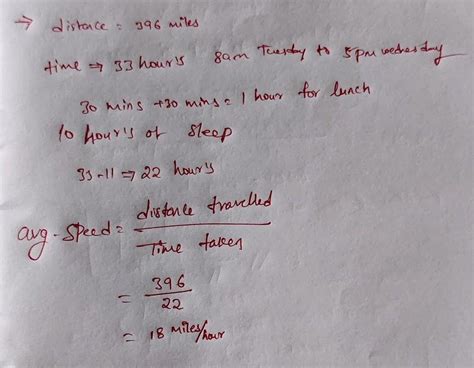 → distance = 396 miles
time ⇒ 33 hour's 8am Tuesday to 5pm wednesday
30 mins +30 mins = 1 hour for lunch
10 hour's of sleep
33-11 ⇒ 22 hour's
avg. speed = distance travelled / Time taken
= 396 / 22
= 18 miles/hour